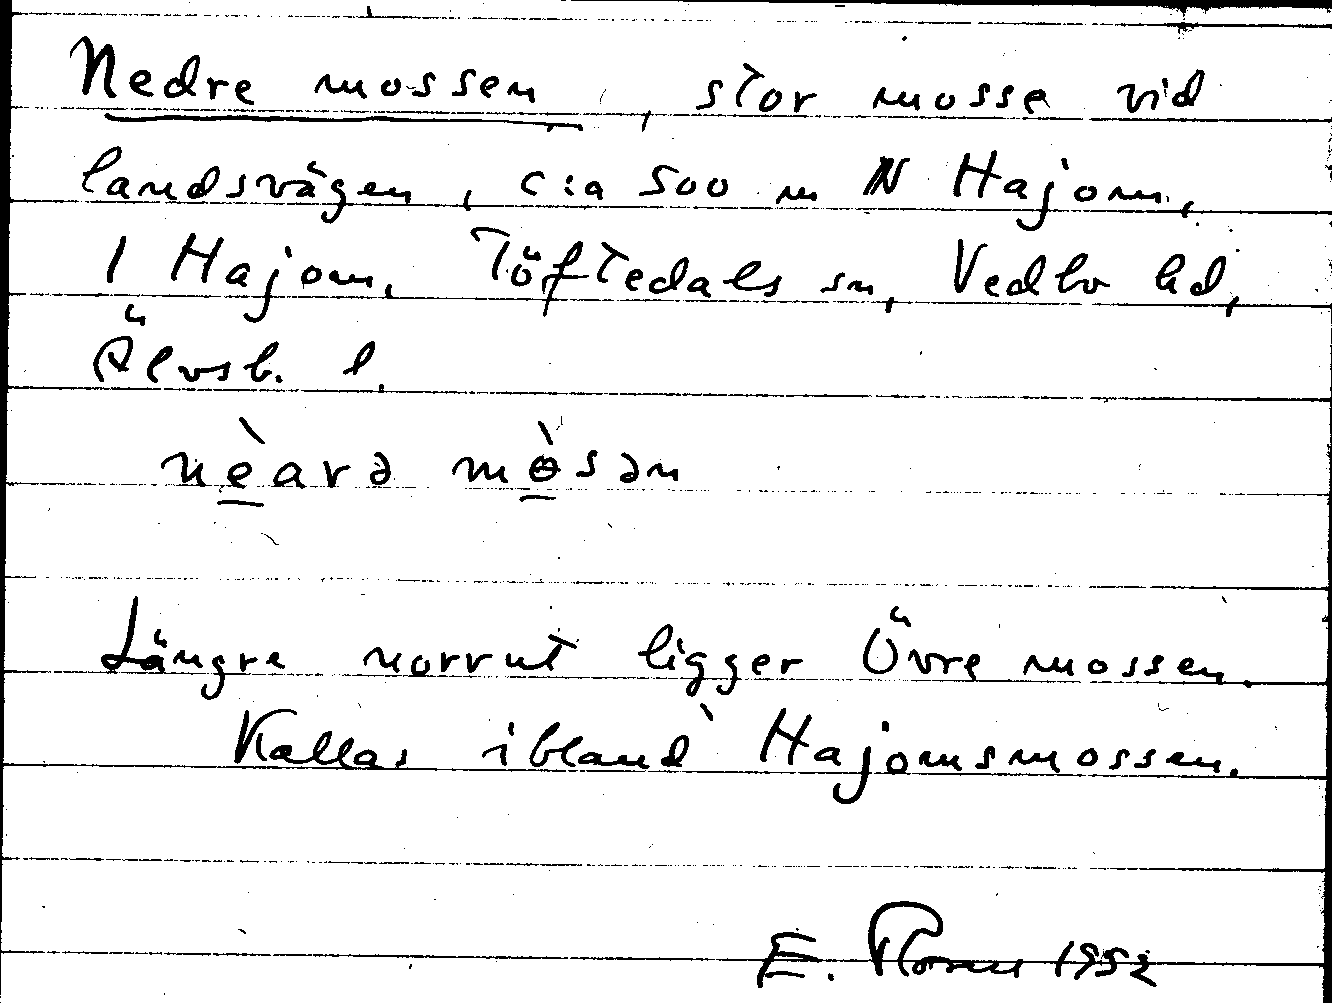 Nedre mossen, stor mosse vid
landsvägen, c:a 500 m N Hajom,
I Hajom, Töftedals sn, Vedbo hd,
Älvsb. l.
nèarə mɵ̀sən
Längre norrut ligger Övre mossen.
Kallas ibland Hajomsmossen.
E. 1952